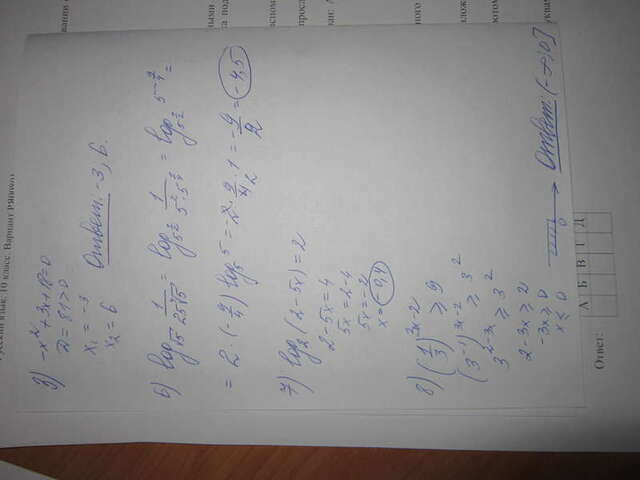 Русский язык. 10 класс. Вариант
3) -x²+3x+18=0
D=81>0
x₁=-3
x₂=6
Ответ: -3; 6.
6) log_√5 1/(25⁴√5) = log_5^(1/2) 1/(5²·5^(1/4)) = log_5^(1/2) 5^(-9/4) =
= 2·(-9/4) log_5 5 = -2·9/4·1 = -9/2 = -4,5
7) log₂(2-5x)=2
2-5x=4
5x=2-4
5x=-2
x=-0,4
8) (1/3)^(3x-2) ≥ 9
(3^(-1))^(3x-2) ≥ 3²
3^(2-3x) ≥ 3²
2-3x ≥ 2
-3x ≥ 0
x ≤ 0
0
Ответ: (-∞; 0]
А Б В Г Д
Ответ: